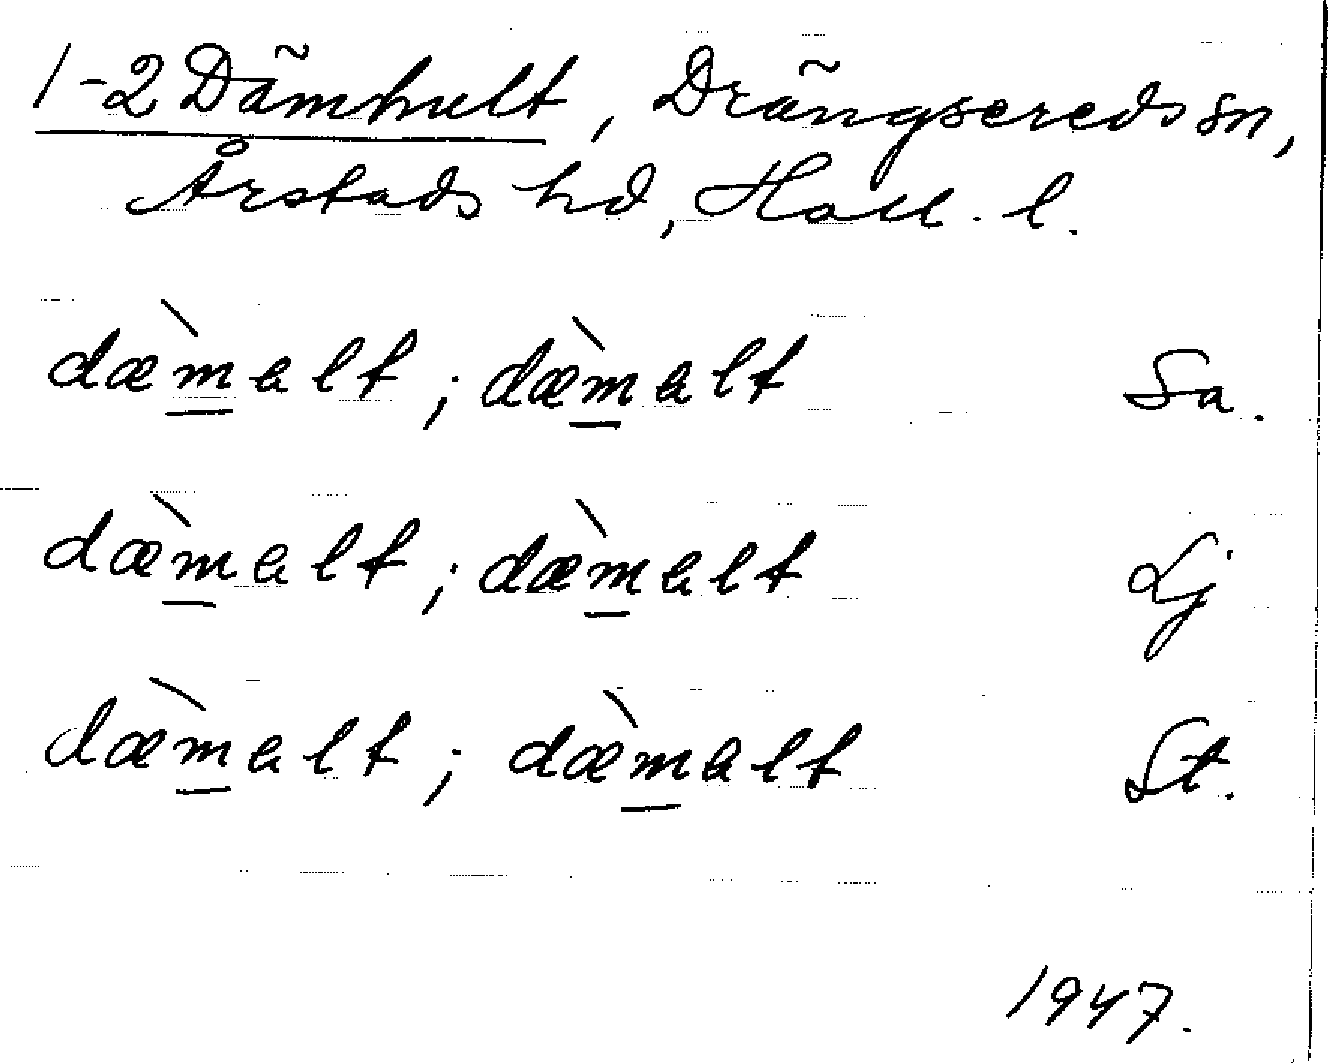 1-2 Dämhult, Drängsereds sn,
Årstads hd, Hall. l.
dæ̀m̲alt; dæ̀m̲alt Sa.
dæ̀m̲alt; dæ̀m̲alt Lj
dæ̀m̲alt; dæ̀m̲alt St.
1947.